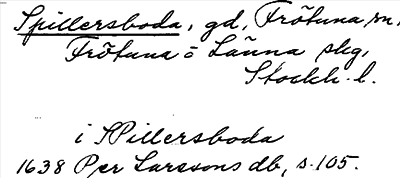 Spillersboda, gd, Frötuna sn,
Frötuna o Länna skg,
Stockh. l.
i SPillersboda
1638 Per Larssons db, s. 105.